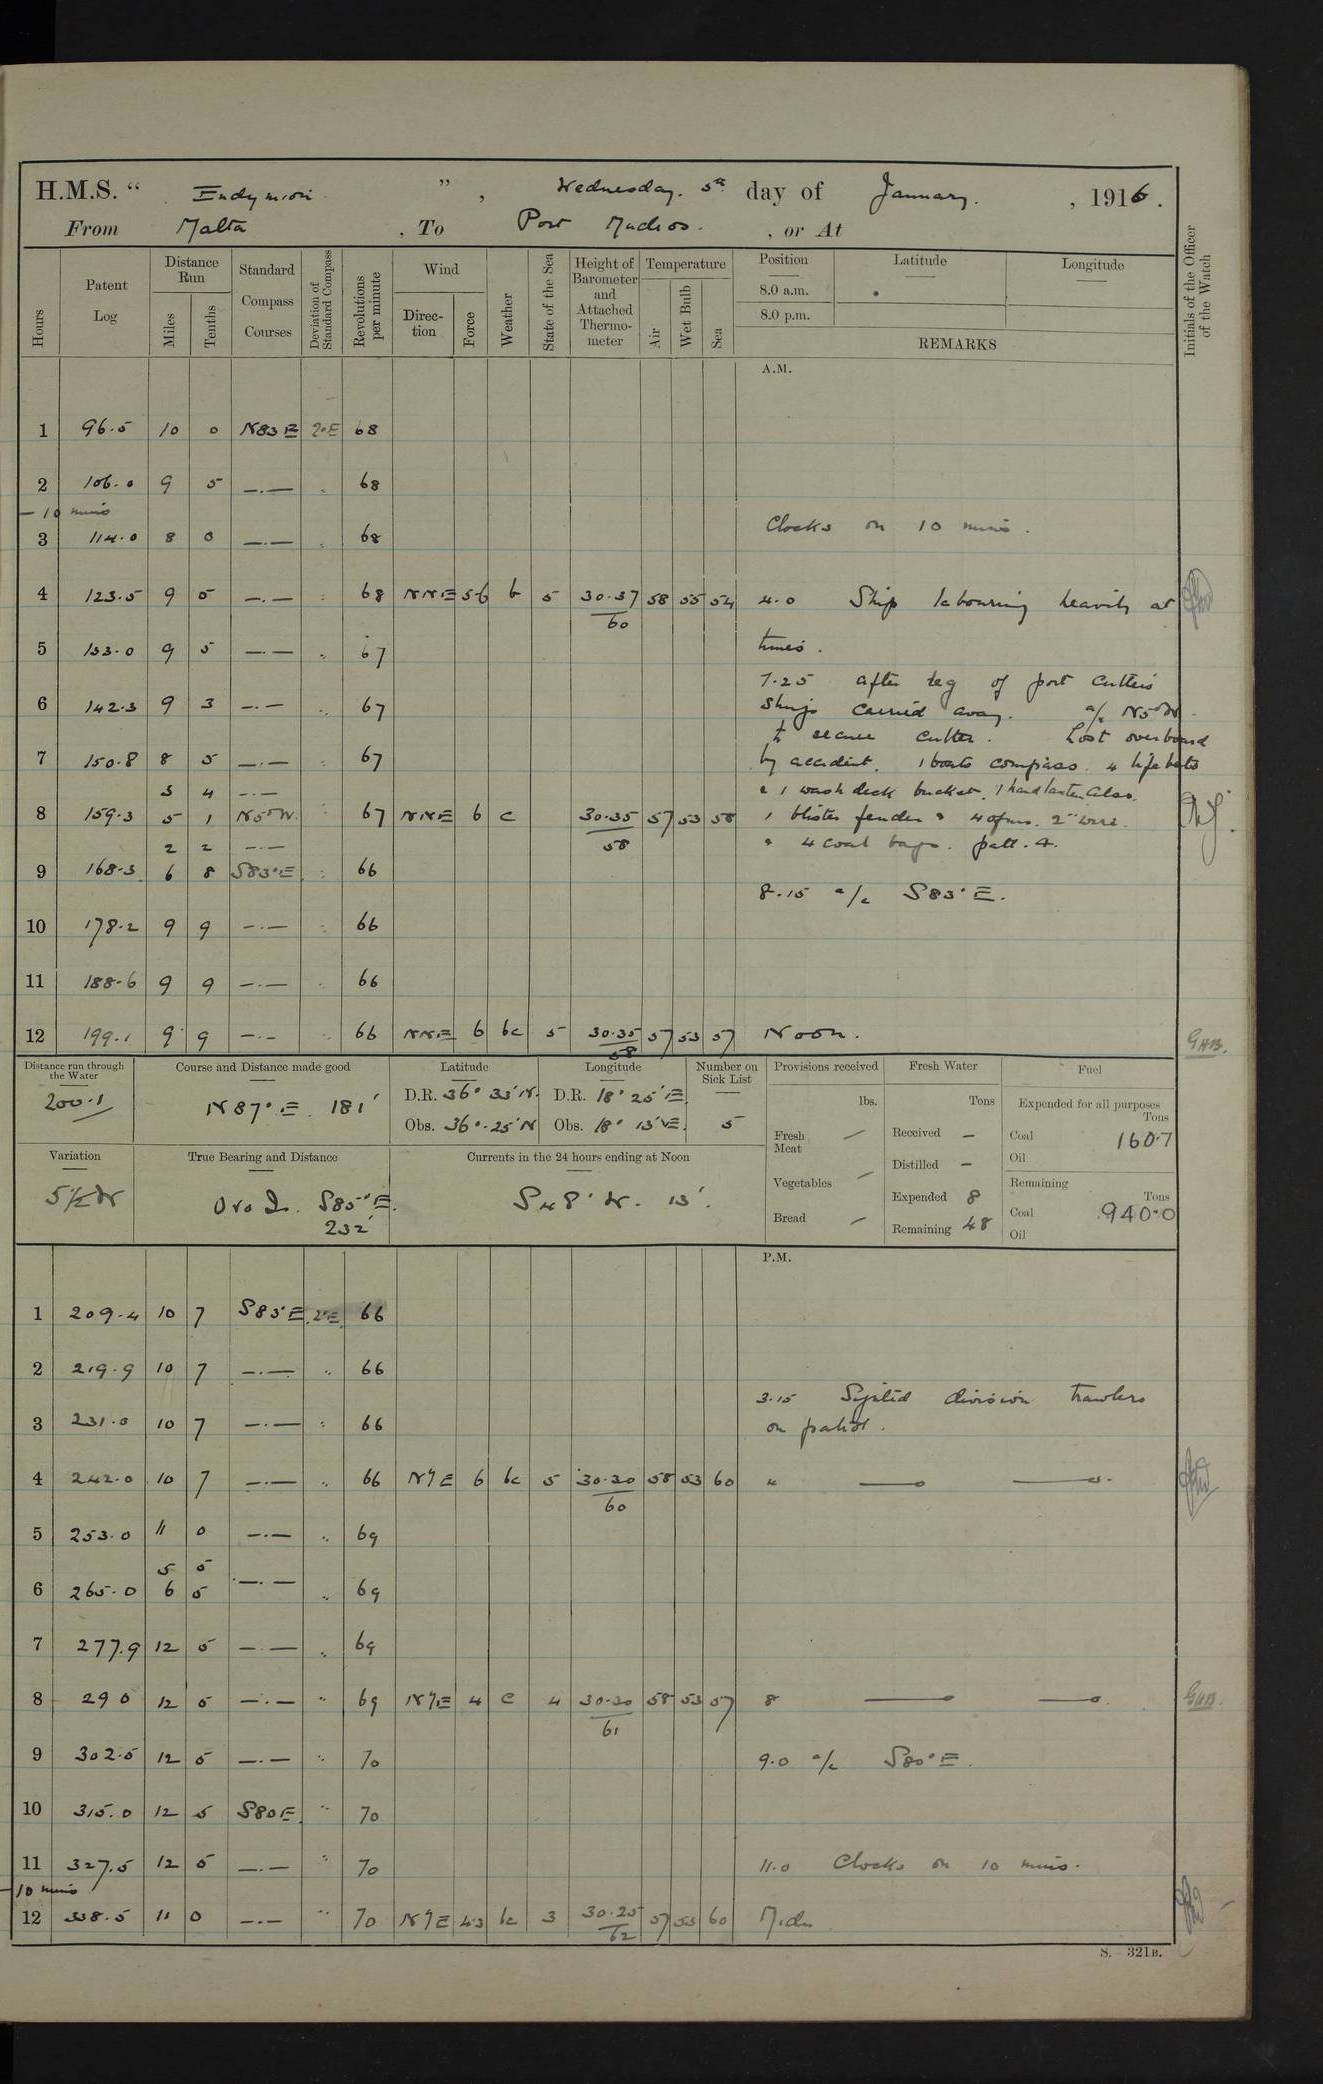 H.M.S. “ Endymion ” , Wednesday. 5th day of January. , 1916 .
From Malta , To Port Mudros. , or At
Hours Patent Log Distance Run Miles Tenths Standard Compass Courses Deviation of Standard Compass Revolutions per minute Wind Direction Force Weather State of the Sea Height of Barometer and Attached Thermometer Temperature Air Wet Bulb Sea Position 8.0 a.m. 8.0 p.m. Latitude Longitude REMARKS Initials of the Officer of the Watch
A.M.
1 96.5 10 0 N83E 2°E 68
2 106.0 9 5 —.— 68
— 10 mins
Clocks on 10 mins.
3 114.0 8 0 —.— 68
4 123.5 9 5 —.— 68 NNE 5-6 b 5 30.37 58 55 54 4.0 Ship labouring heavily at
60
5 133.0 9 5 —.— 67 times.
7.25 after leg of port cutters
6 142.3 9 3 —.— 67 slings carried away. a/c N5°W.
to secure cutter. Lost overboard
7 150.8 8 5 —.— 67 by accident. 1 boats compass. 4 lifebelts
3 4 —.— & 1 wash deck bucket. 1 hand lantern also.
8 159.3 5 1 N5°W. 67 NNE 6 c 30.35 57 53 58 1 blister fender & 4 ofms. 2" wire.
58
2 2 —.— & 4 coal bags. patt. 4.
9 168.3 6 8 S83°E 66
8.15 a/c S83°E.
10 178.2 9 9 —.— 66
11 188.6 9 9 —.— 66
12 199.1 9 9 —.— 66 NNE 6 bc 5 30.35 57 53 57 Noon. GHB.
58
Distance run through the Water
200.1
Course and Distance made good
N87°E. 181'
Latitude
D.R. 36° 33'N.
Obs. 36°.25'N
Longitude
D.R. 18° 25'E
Obs. 18° 13'E.
Number on Sick List
5
Provisions received
lbs.
Fresh Meat —
Vegetables —
Bread —
Fresh Water
Tons
Received —
Distilled —
Expended 8
Remaining 48
Fuel
Expended for all purposes
Tons
Coal 160.7
Oil
Remaining
Tons
Coal 940.0
Oil
Variation
5½W
True Bearing and Distance
Ovo I. S85°E.
232'
Currents in the 24 hours ending at Noon
S48°W. 13'.
P.M.
1 209.4 10 7 S83°E 2°E 66
2 219.9 10 7 —.— 66
3.15 Sighted division trawlers
3 231.0 10 7 —.— 66 on patrol.
4 242.0 10 7 —.— 66 N'E 6 bc 5 30.30 58 53 60 4
60
5 253.0 11 0 —.— 69
5 5
6 265.0 6 5 —.— 69
7 277.9 12 5 —.— 69
8 290 12 5 —.— 69 N'E 4 c 4 30.30 58 53 57 8 GHB.
61
9 302.5 12 5 —.— 70 9.0 a/c S80°E.
10 315.0 12 5 S80E. 70
11 327.5 12 5 —.— 70 11.0 Clocks on 10 mins.
— 10 mins
12 338.5 11 0 —.— 70 N'E 4.3 bc 3 30.25 57 53 60 Midn
62
S. 321B.